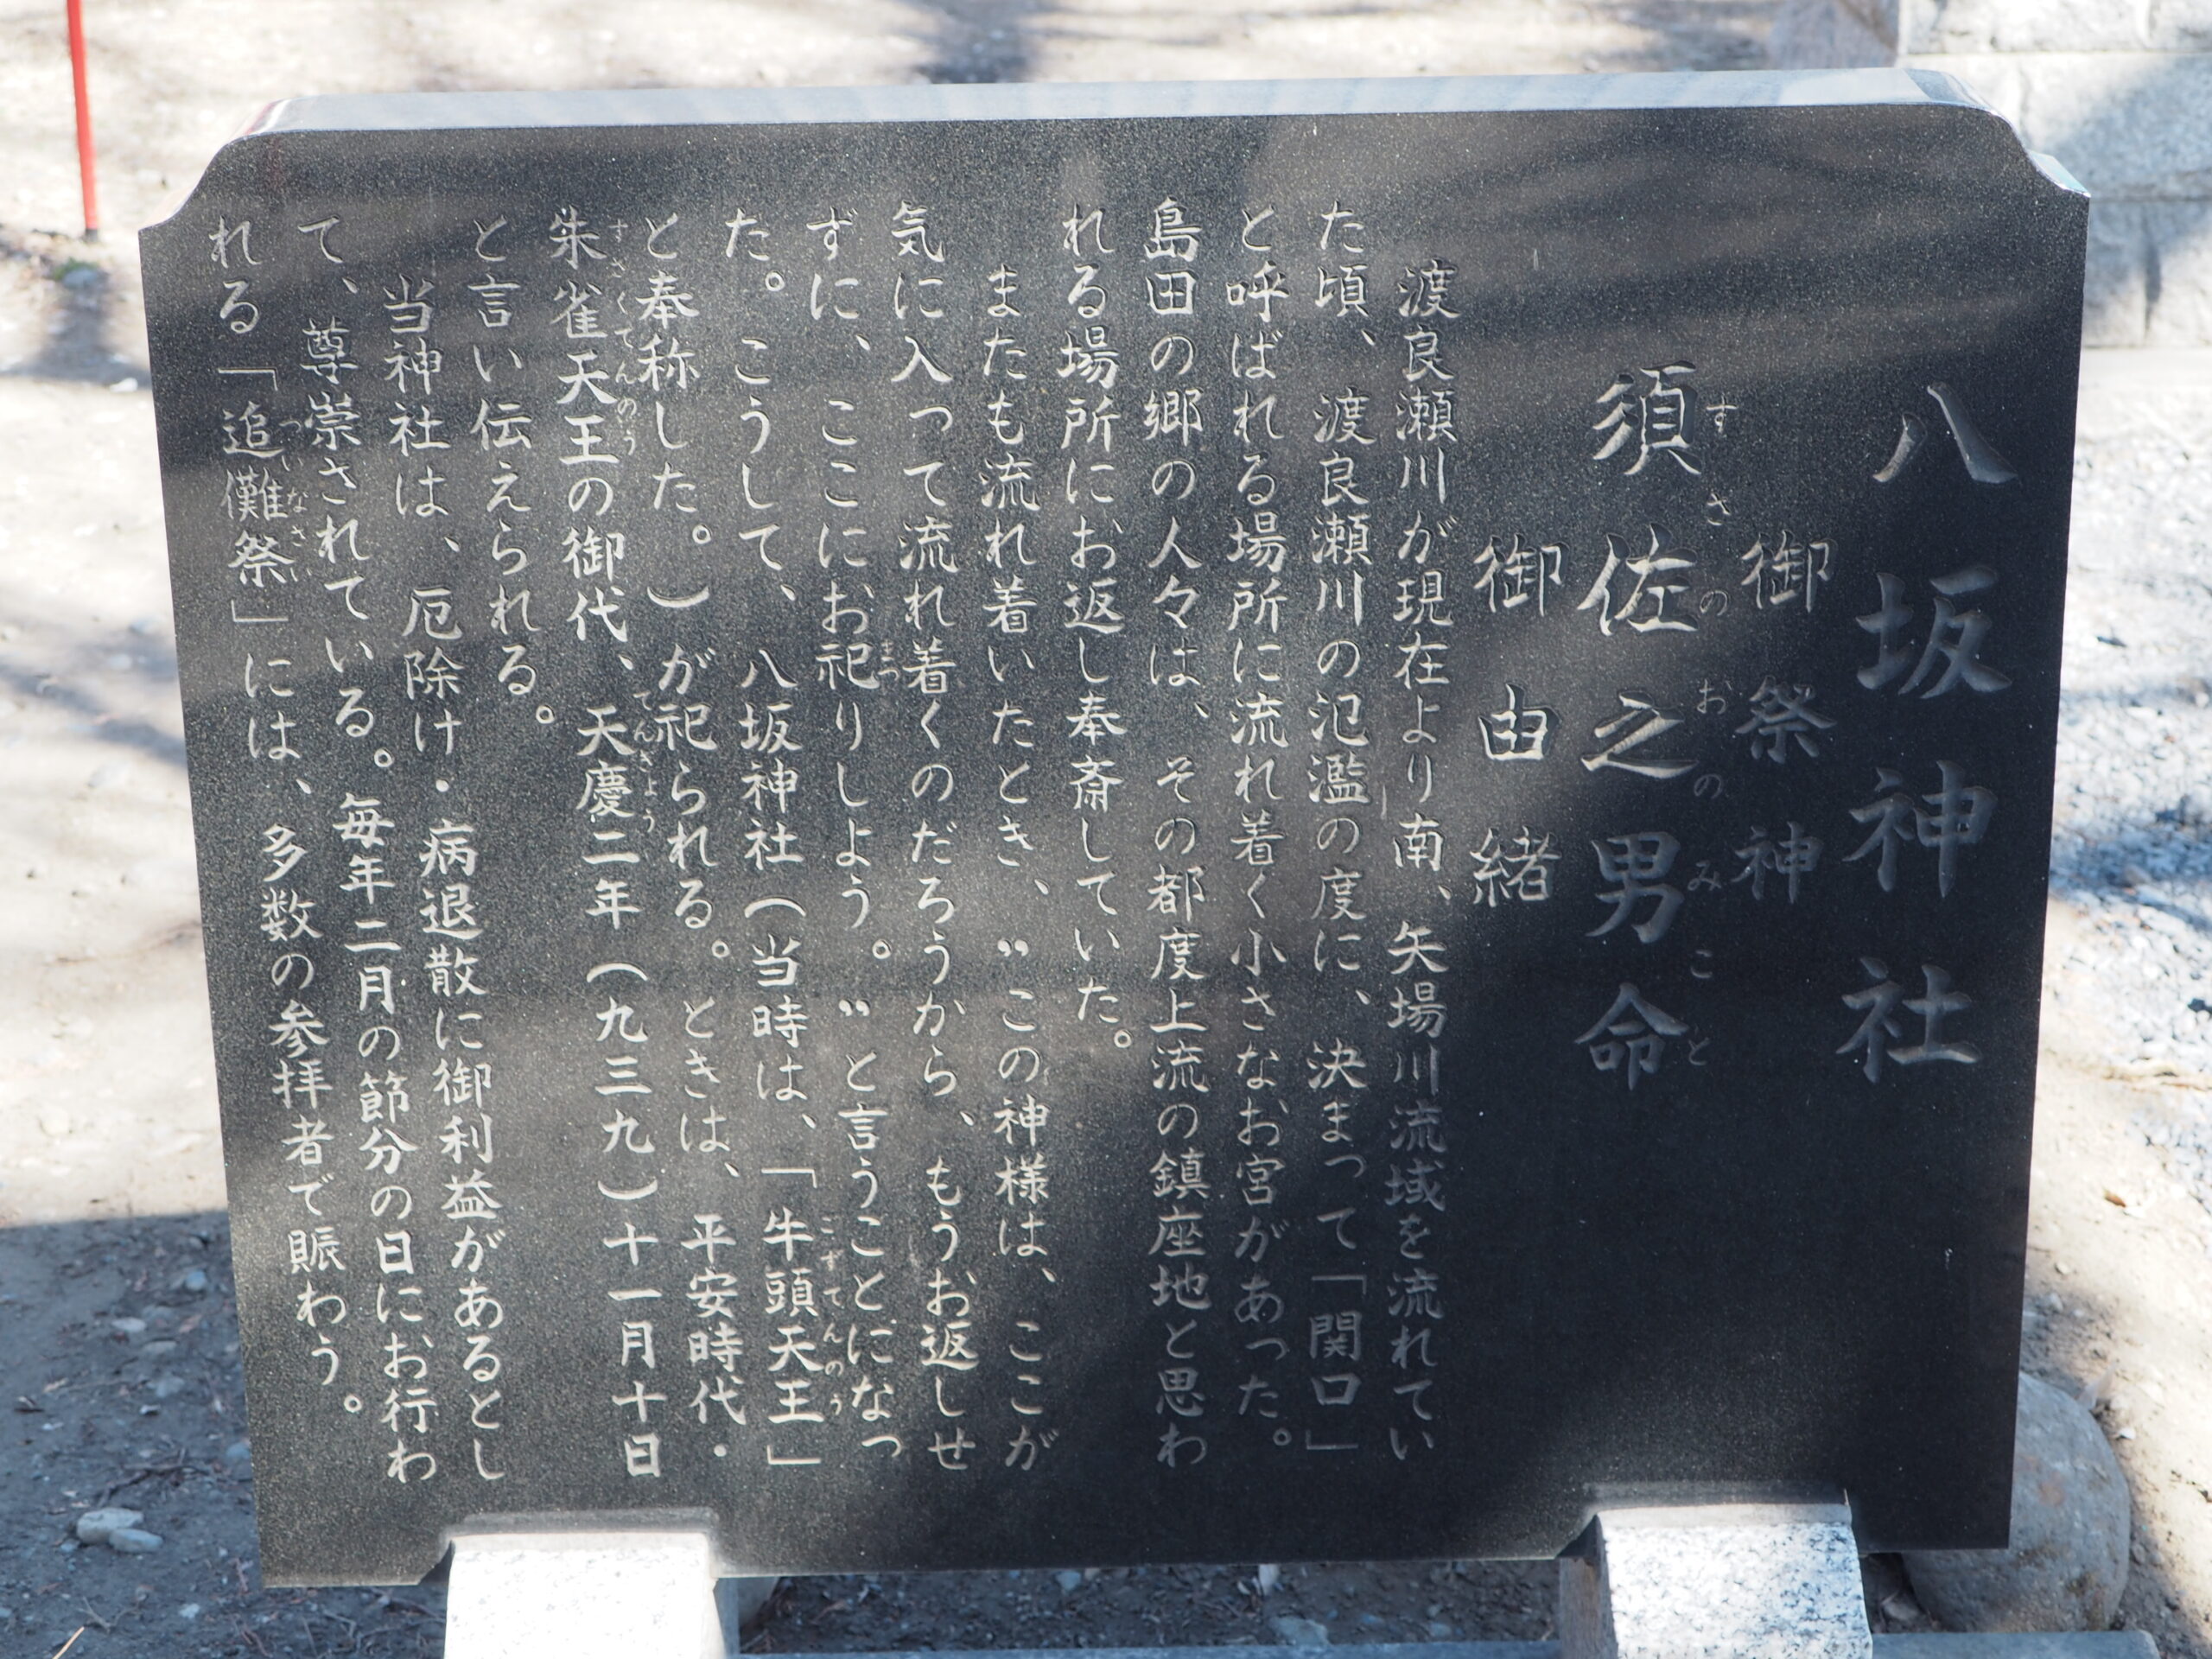 八坂神社
御祭神
須佐之男命
すさのおのみこと
御由緒
渡良瀬川が現在より南、矢場川流域を流れてい
た頃、渡良瀬川の氾濫の度に、決まって「関口」
と呼ばれる場所に流れ着く小さなお宮があった。
島田の郷の人々は、その都度上流の鎮座地と思わ
れる場所にお返し奉斎していた。
またも流れ着いたとき、〝この神様は、ここが
気に入って流れ着くのだろうから、もうお返しせ
ずに、ここにお祀りしよう。〟と言うことになっ
まつ
た。こうして、八坂神社(当時は、「牛頭天王」
ごずてんのう
と奉称した。)が祀られる。ときは、平安時代・
朱雀天王の御代、天慶二年(九三九)十一月十日
すざくてんのう
てんぎょう
と言い伝えられる。
当神社は、厄除け・病退散に御利益があるとし
て、尊崇されている。毎年二月の節分の日にお行わ
れる「追儺祭」には、多数の参拝者で賑わう。
ついなさい